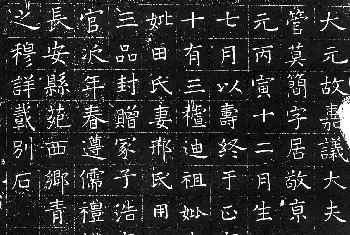 大元故嘉議大夫
管莫簡字居敬京
元丙寅十二月生
七月以壽終于正
十有三迪祖妣
妣田氏妻邢氏用
三品封贈冢子浩
官次年春遵儒禮
長安縣苑西鄉青
之穆詳載別石